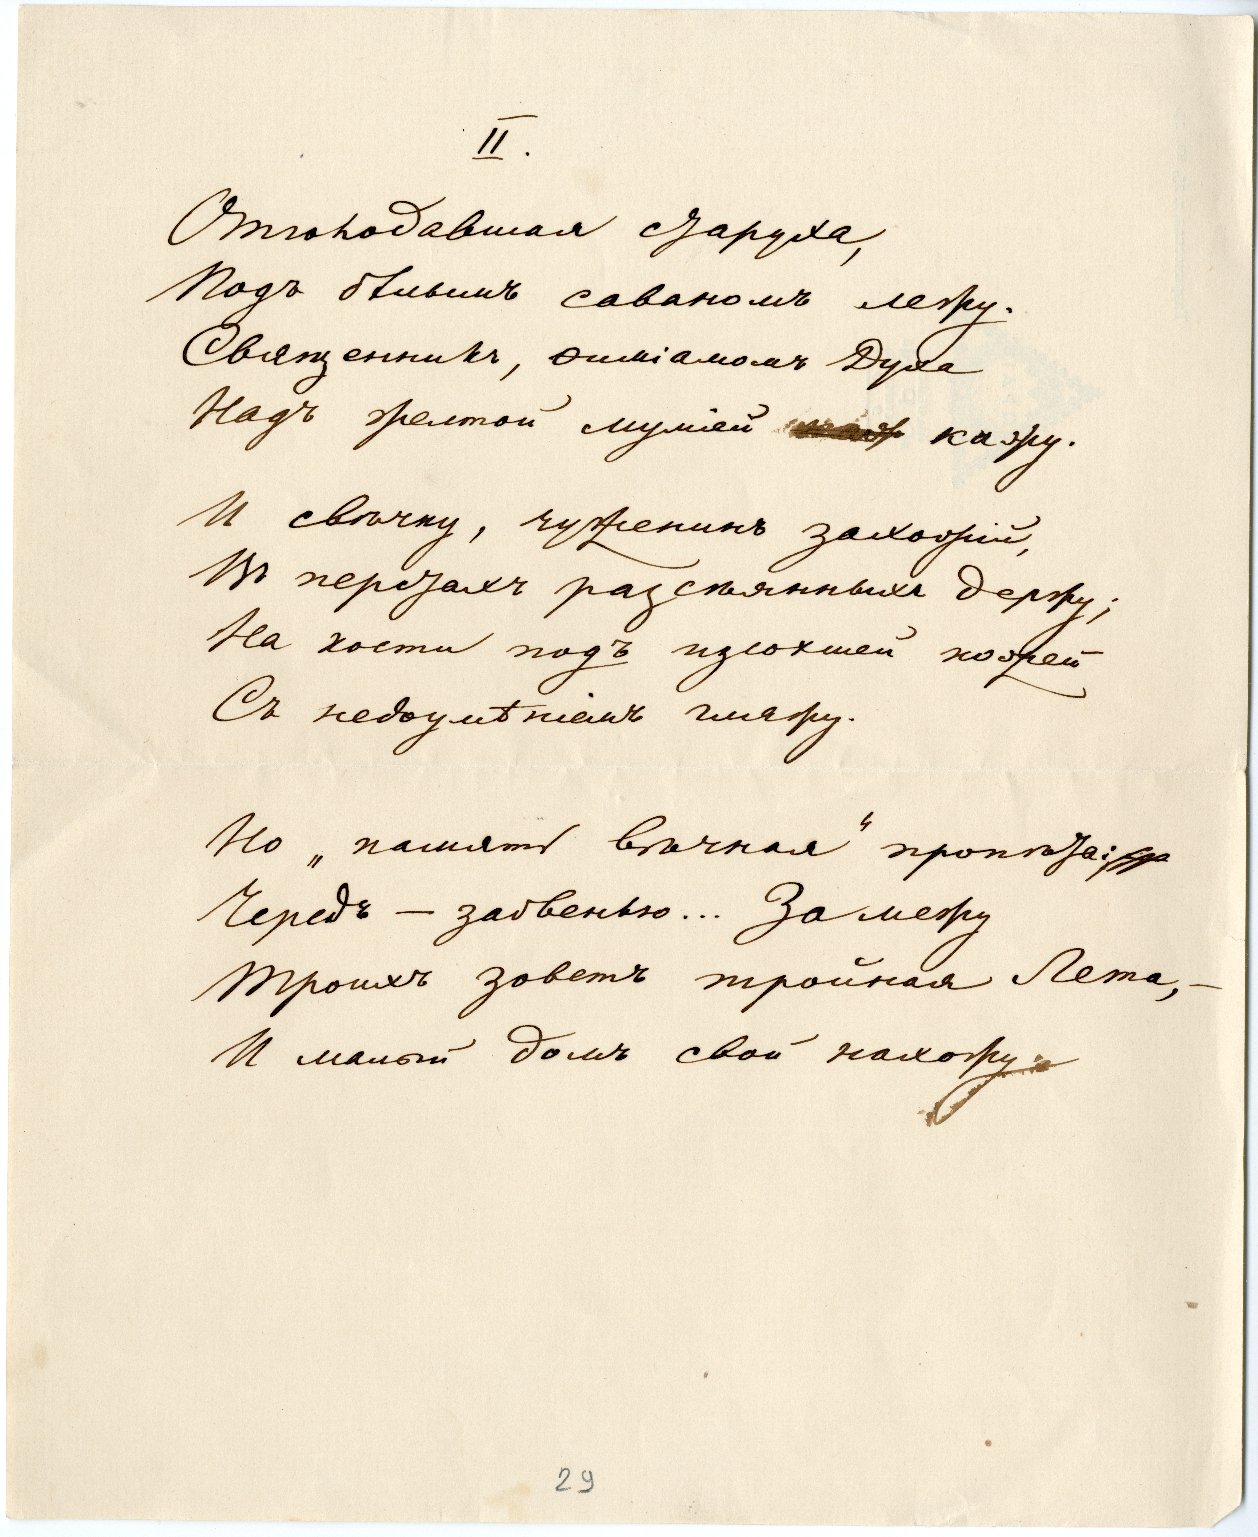 II.
Отголодавшая старуха,
Подъ бѣлымъ саваномъ лежу.
Священникъ, ѳиміамомъ Духа
Надъ желтой муміей кажу.
И свѣчку, чуженинъ захожій,
Въ перстахъ разсѣянныхъ держу;
На кости подъ изсохшей кожей
Съ недоумѣніемъ гляжу.
Но „память вѣчная“ пропѣта:
Чередъ — забвенью... За межу
Троихъ зоветъ тройная Лета, —
И малый домъ свой нахожу.
29